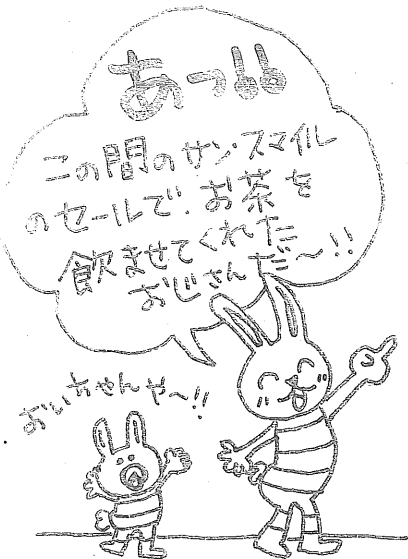 あっ!!
この間のサン・スマイル
のセールで、お茶を
飲ませてくれた
おじさんだ〜!!
おいちゃんや〜!!